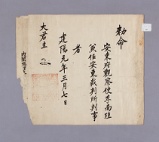 勅命
安東府觀察使李南珪
兼任安東裁判所判事
者
建陽元年三月七日
大君主